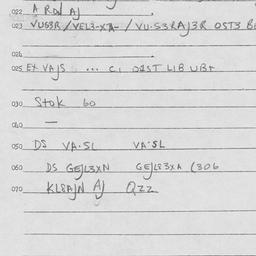 022 A RDL AJ
023 VUS3R / VEL3-XA- / VU-S3RAJ3R OST3
024
025 EX VAJS ... C1 OAST LIB UBT
030 Stok 60
040 —
050 DS VA-SL VA-SL
060 DS GEJL3XN GEJL83XA (306
070 KL8AJN AJ QZZ